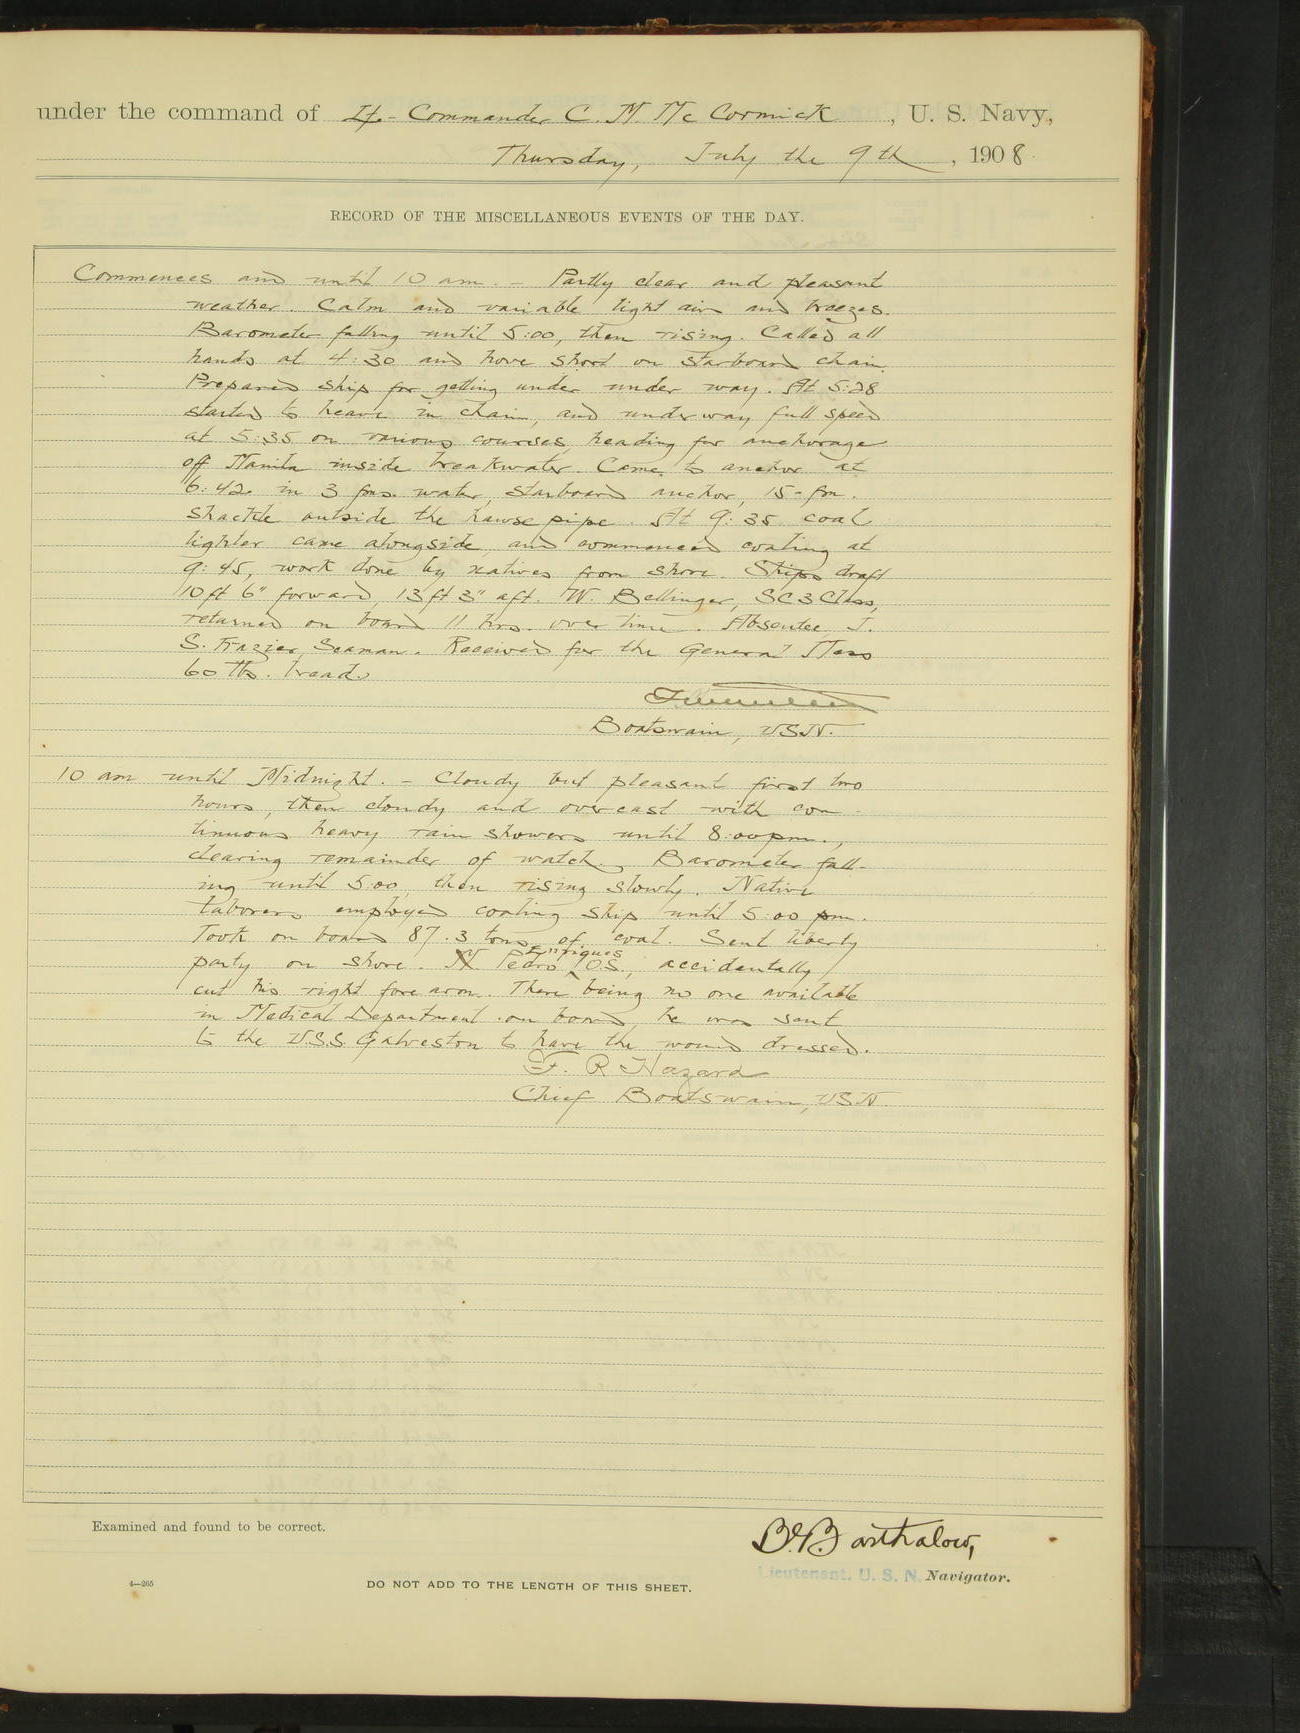 under the command of Lt-Commander C. M. Mc Cormick, U. S. Navy,
Thursday, July the 9th, 1908.
RECORD OF THE MISCELLANEOUS EVENTS OF THE DAY.
Commences and until 10 am. - Partly clear and pleasant
weather. Calm and variable light airs and breezes.
Barometer falling until 5:00, then rising. Called all
hands at 4:30 and hove short on starboard chain.
Prepared ship for getting under under way. At 5:28
started to heave in chain, and under way full speed
at 5:35 on various courses, heading for anchorage
off Manila inside breakwater. Came to anchor at
6:42 in 3 fms. water, starboard anchor, 15-fm.
shackle outside the hawse pipe. At 9:35 coal
lighter came alongside and commenced coaling at
9:45, work done by natives from shore. Ships draft
10 ft 6" forward, 13 ft 3" aft. W. Bellinger, SC3Class,
returned on board 11 hrs. over time. Absentee, J.
S. Frazier, Seaman. Received for the General Mess
60 lbs. bread.
Boatswain, USN.
10 am until Midnight. - Cloudy but pleasant first two
hours, then cloudy and overcast with con-
tinuous heavy rain showers until 8:00 pm.,
clearing remainder of watch. Barometer fall-
ing until 5:00, then rising slowly. Native
laborers employed coaling ship until 5:00 pm.
Took on board 87.3 tons of coal. Sent liberty
party on shore. Pedro Enriques O.S., accidentally
cut his right fore arm. There being no one available
in Medical Department on board, he was sent
to the U.S.S. Galveston to have the wound dressed.
F. R Hazard
Chief Boatswain, USN.
Examined and found to be correct.
Lieutenant, U. S. N. Navigator.
4—265
DO NOT ADD TO THE LENGTH OF THIS SHEET.